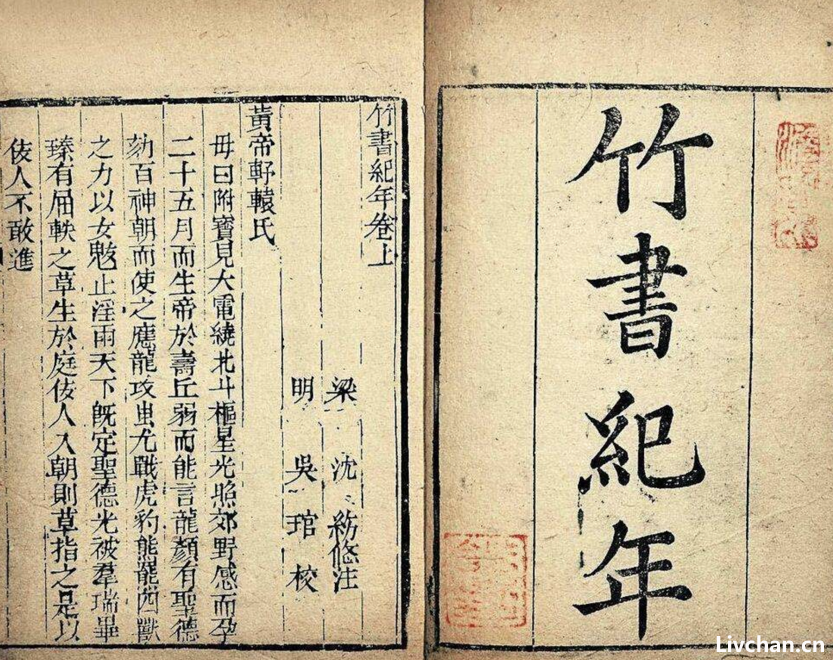 竹書紀年
竹書紀年卷上
梁 沈 約 附注
明 吳 琯 校
黃帝軒轅氏
母曰附寶見大電繞北斗樞星光照郊野感而孕
二十五月而生帝於壽丘弱而能言龍顏有聖德
劾百神朝而使之應龍攻蚩尤戰虎豹熊羆四獸
之力以女魃止淫雨天下旣定聖德光被羣瑞畢
臻有屈軼之草生於庭佞人入朝則草指之是以
佞人不敢進
Livchan.cn